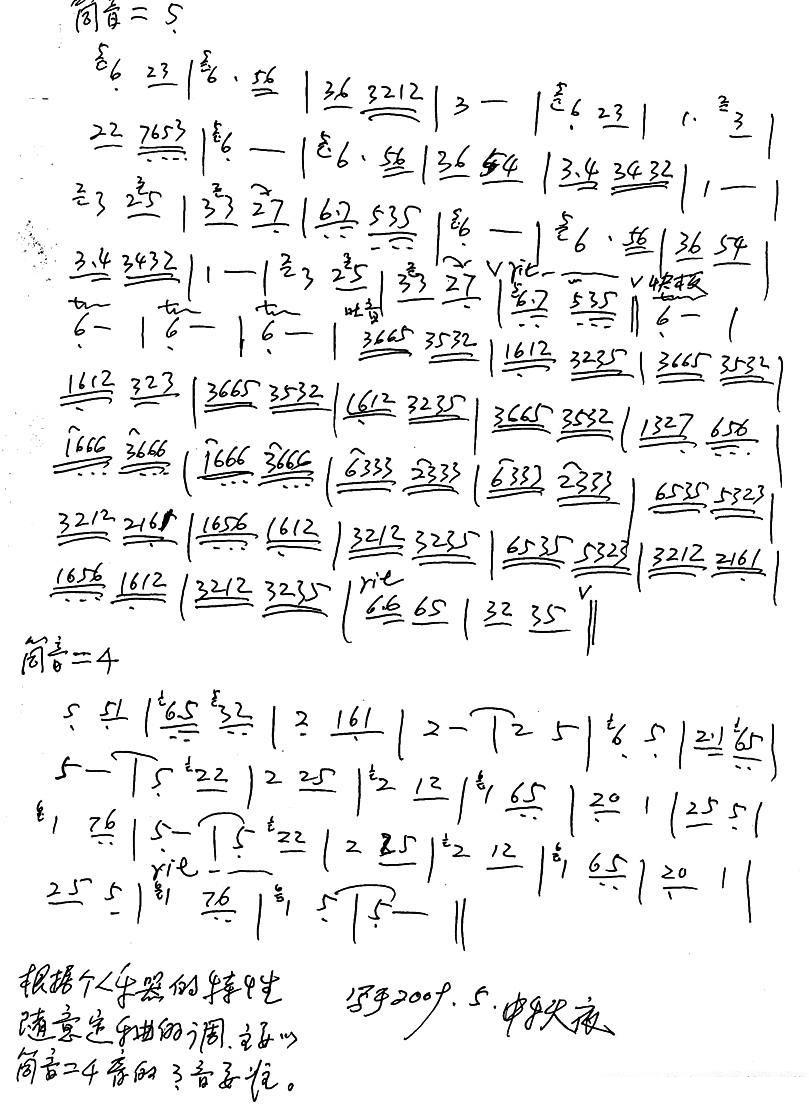 筒音=5
6 23 | 6 · 56 | 36 3212 | 3 — | 6 23 | 1 · 3 |
22 7653 | 6 — | 6 · 56 | 36 54 | 3.4 3432 | 1 — |
3 25 | 33 27 | 6.7 535 | 6 — | 6 · 56 | 36 54 |
3.4 3432 | 1 — | 3 25 | 33 27 V rit | 6.7 535 V ‖ 快板 tr 6 — |
tr 6 — | tr 6 — | tr 6 — | 吐音 3665 3532 | 1612 3235 | 3665 3532 |
1612 323 | 3665 3532 | 1612 3235 | 3665 3532 | 1327 656 |
1666 3666 | 1666 3666 | 6333 2333 | 6333 2333 | 6535 5323 |
3212 2161 | 1656 1612 | 3212 3235 | 6535 5323 | 3212 2161 |
1656 1612 | 3212 3235 | rit 6.6 65 | 32 35 V ‖
筒音=4
5 51 | 65 32 | 2 161 | 2 — | 2 5 | 6 5 | 2.1 65 |
5 — | 5 22 | 2 25 | 2 12 | 1 65 | 20 1 | 25 5 |
1 76 | 5 — | 5 22 | 2 25 | 2 12 | 1 65 | 20 1 |
25 5 | rit 1 76 | 1 5 | 5 — ‖
根据个人乐器的特性
随意定乐曲的调.主要以
筒音=4音的3音要准。
写于2009.5.中午大夜